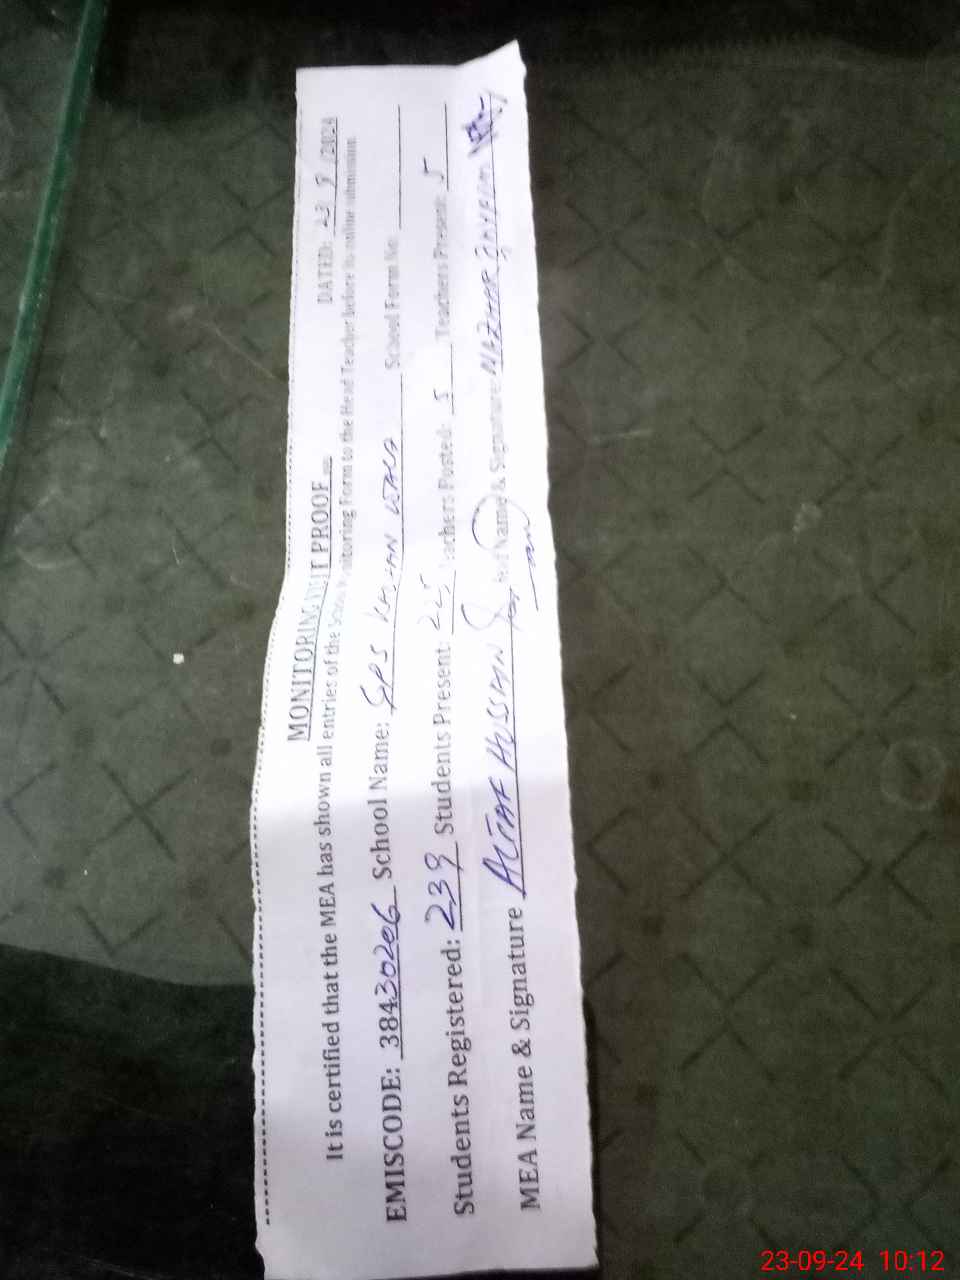 MONITORING VISIT PROOF
DATED: 23 9 /2024
It is certified that the MEA has shown all entries of the School Monitoring Form to the Head Teacher before its online submission.
EMISCODE: 38430206 School Name: GPS School Form No.
Students Registered: 239 Students Present: 225 Teachers Posted: 5 Teachers Present: 5
MEA Name & Signature ALTAF HUSSAIN Name & Signature: MAZHAR
23-09-24 10:12